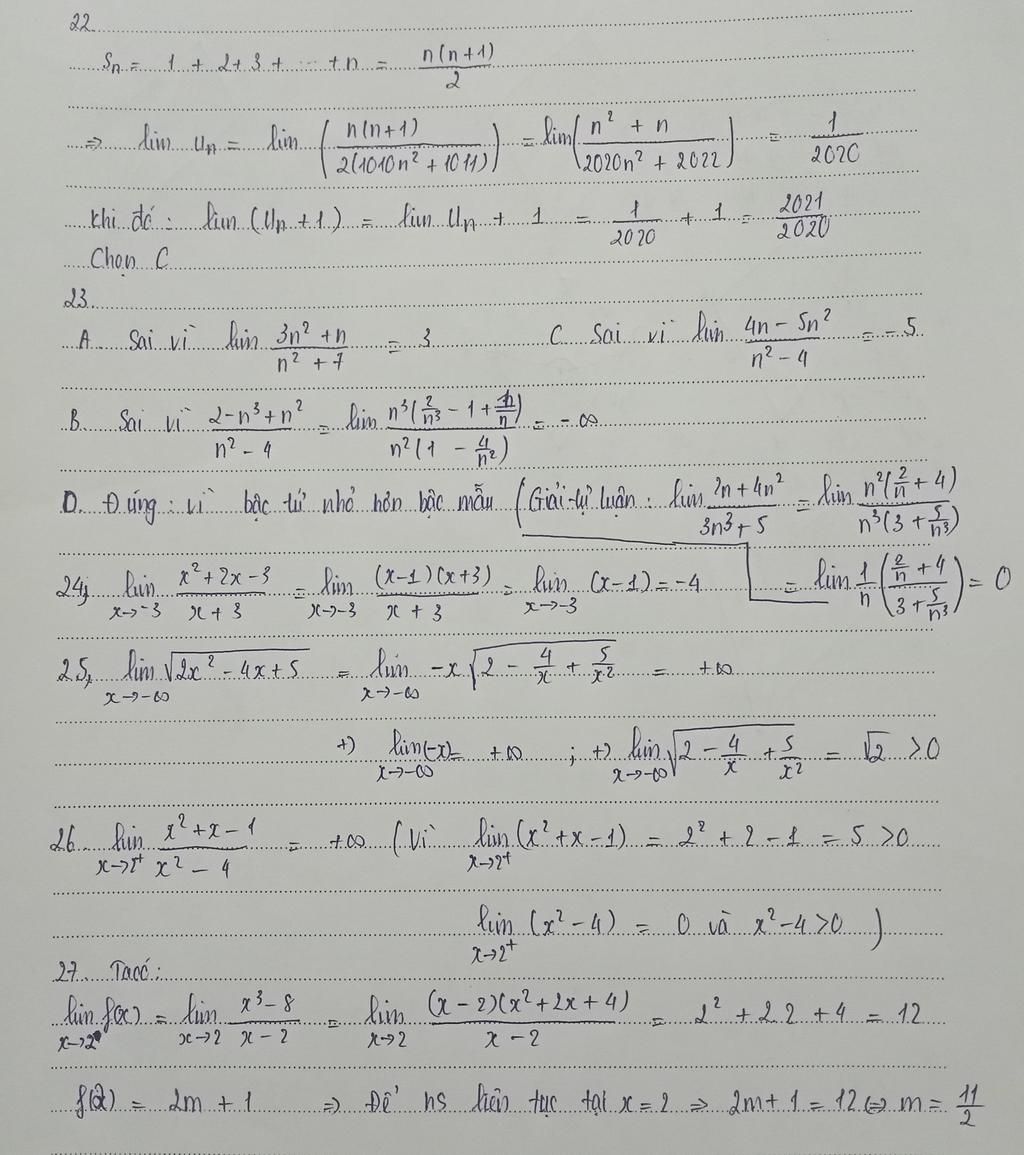 22
Sn = 1 + 2 + 3 + ... + n = n(n+1)/2
⇒ lim Un = lim (n(n+1)/(2(1010n² + 1011))) = lim((n² + n)/(2020n² + 2022)) = 1/2020
Khi đó : lim (Un + 1) = lim Un + 1 = 1/2020 + 1 = 2021/2020
Chọn C
23.
A. Sai vì lim (3n² + n)/(n² + 7) = 3 C. Sai vì lim (4n - 5n²)/(n² - 4) = -5
B. Sai vì (2 - n³ + n²)/(n² - 4) = lim (n³(2/n³ - 1 + 1/n))/(n²(1 - 4/n²)) = -∞
D. Đúng : vì bậc tử nhỏ hơn bậc mẫu (Giải tự luận : lim (2n + 4n²)/(3n³ + 5) = lim (n²(2/n + 4))/(n³(3 + 5/n³))
= lim 1/n ((2/n + 4)/(3 + 5/n³)) = 0
24, lim x→-3 (x² + 2x - 3)/(x + 3) = lim x→-3 ((x-1)(x+3))/(x + 3) = lim x→-3 (x-1) = -4
25, lim x→-∞ √(2x² - 4x + 5) = lim x→-∞ -x√(2 - 4/x + 5/x²) = +∞
+) lim x→-∞ (-x) = +∞ ; +) lim x→-∞ √(2 - 4/x + 5/x²) = √2 > 0
26. lim x→2⁺ (x² + x - 1)/(x² - 4) = +∞ (Vì lim x→2⁺ (x² + x - 1) = 2² + 2 - 1 = 5 > 0
lim x→2⁺ (x² - 4) = 0 và x² - 4 > 0 )
27. Ta có :
lim x→2 f(x) = lim x→2 (x³ - 8)/(x - 2) = lim x→2 ((x - 2)(x² + 2x + 4))/(x - 2) = 2² + 2.2 + 4 = 12
f(2) = 2m + 1 ⇒ Để hs liên tục tại x = 2 ⇒ 2m + 1 = 12 ⇔ m = 11/2